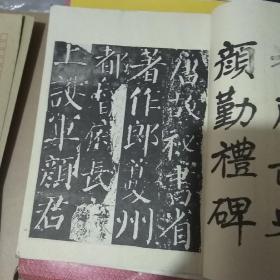 顏勤禮碑
唐故秘書省
著作郎夔州
都督府長史
上護軍顏君